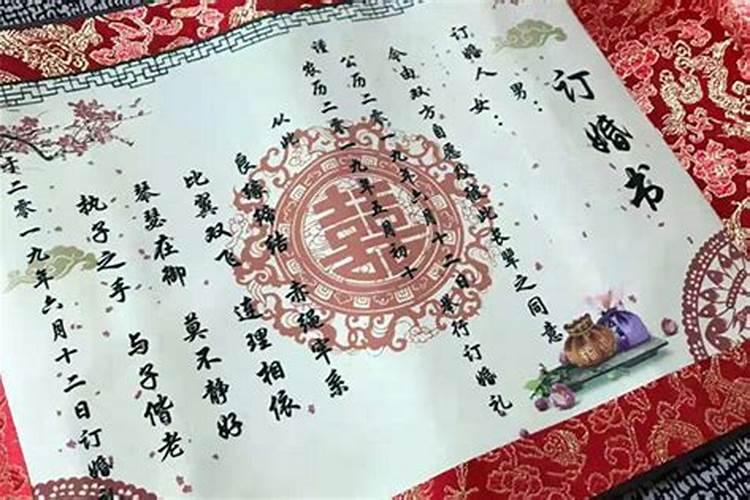 订婚书
订婚人 男：
女：
今由双方自愿及彼此长辈之同意
谨 公历二零一九年六月十二日举行订婚礼
农历二零一九年五月初十
从此
良缘缔结 赤绳牢系
比翼双飞 连理相依
琴瑟在御 莫不静好
执子之手 与子偕老
于二零一九年六月十二日订婚